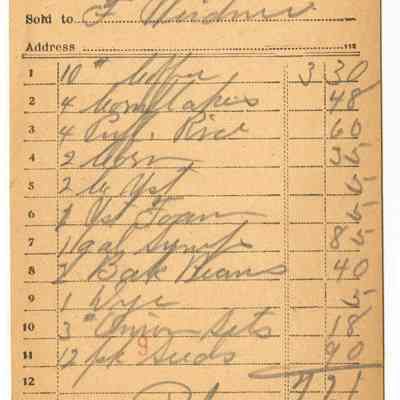 Sold to F Weidner
Address 112
1 10 # Coffee 3 30
2 4 Corn Flakes 48
3 4 Puf. Rice 60
4 2 Corn 35
5 2 Yst 5
6 1 Yst Foam 5
7 1 gal Syrup 85
8 Bak Beans 40
9 1 5
10 3 # Onion Sets 18
11 12 pk Seeds 90
12 7 21
9